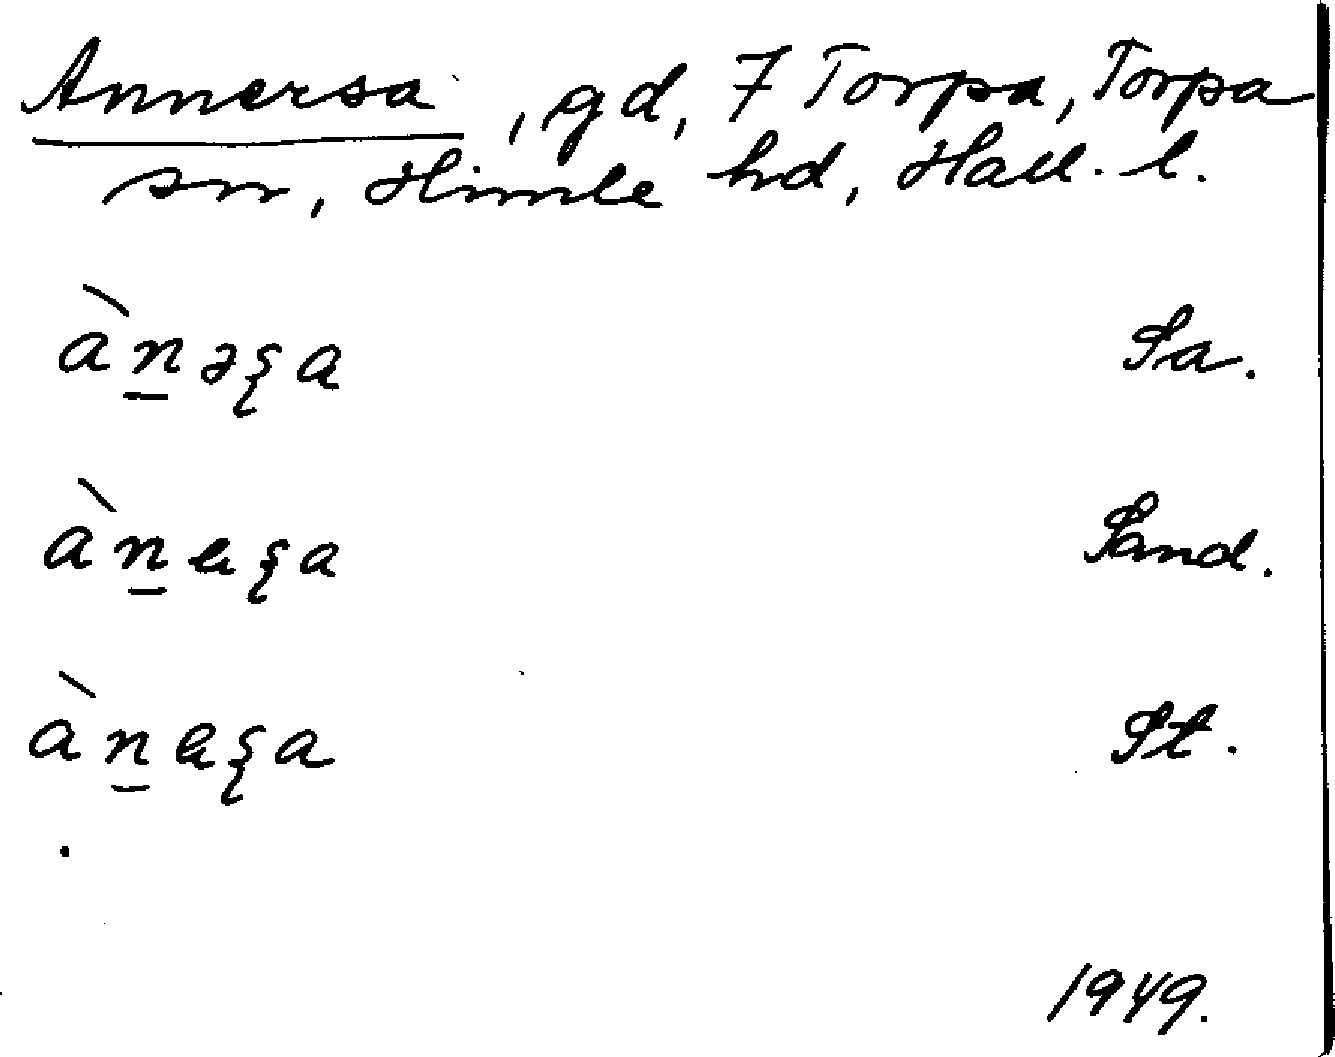 Annersa, gd, 7 Torpa, Torpa
sn, Himle hd, Hall. l.
àn̲əʂa Sa.
àn̲ɐʂa Sand.
àn̲ɐʂa St.
1949.